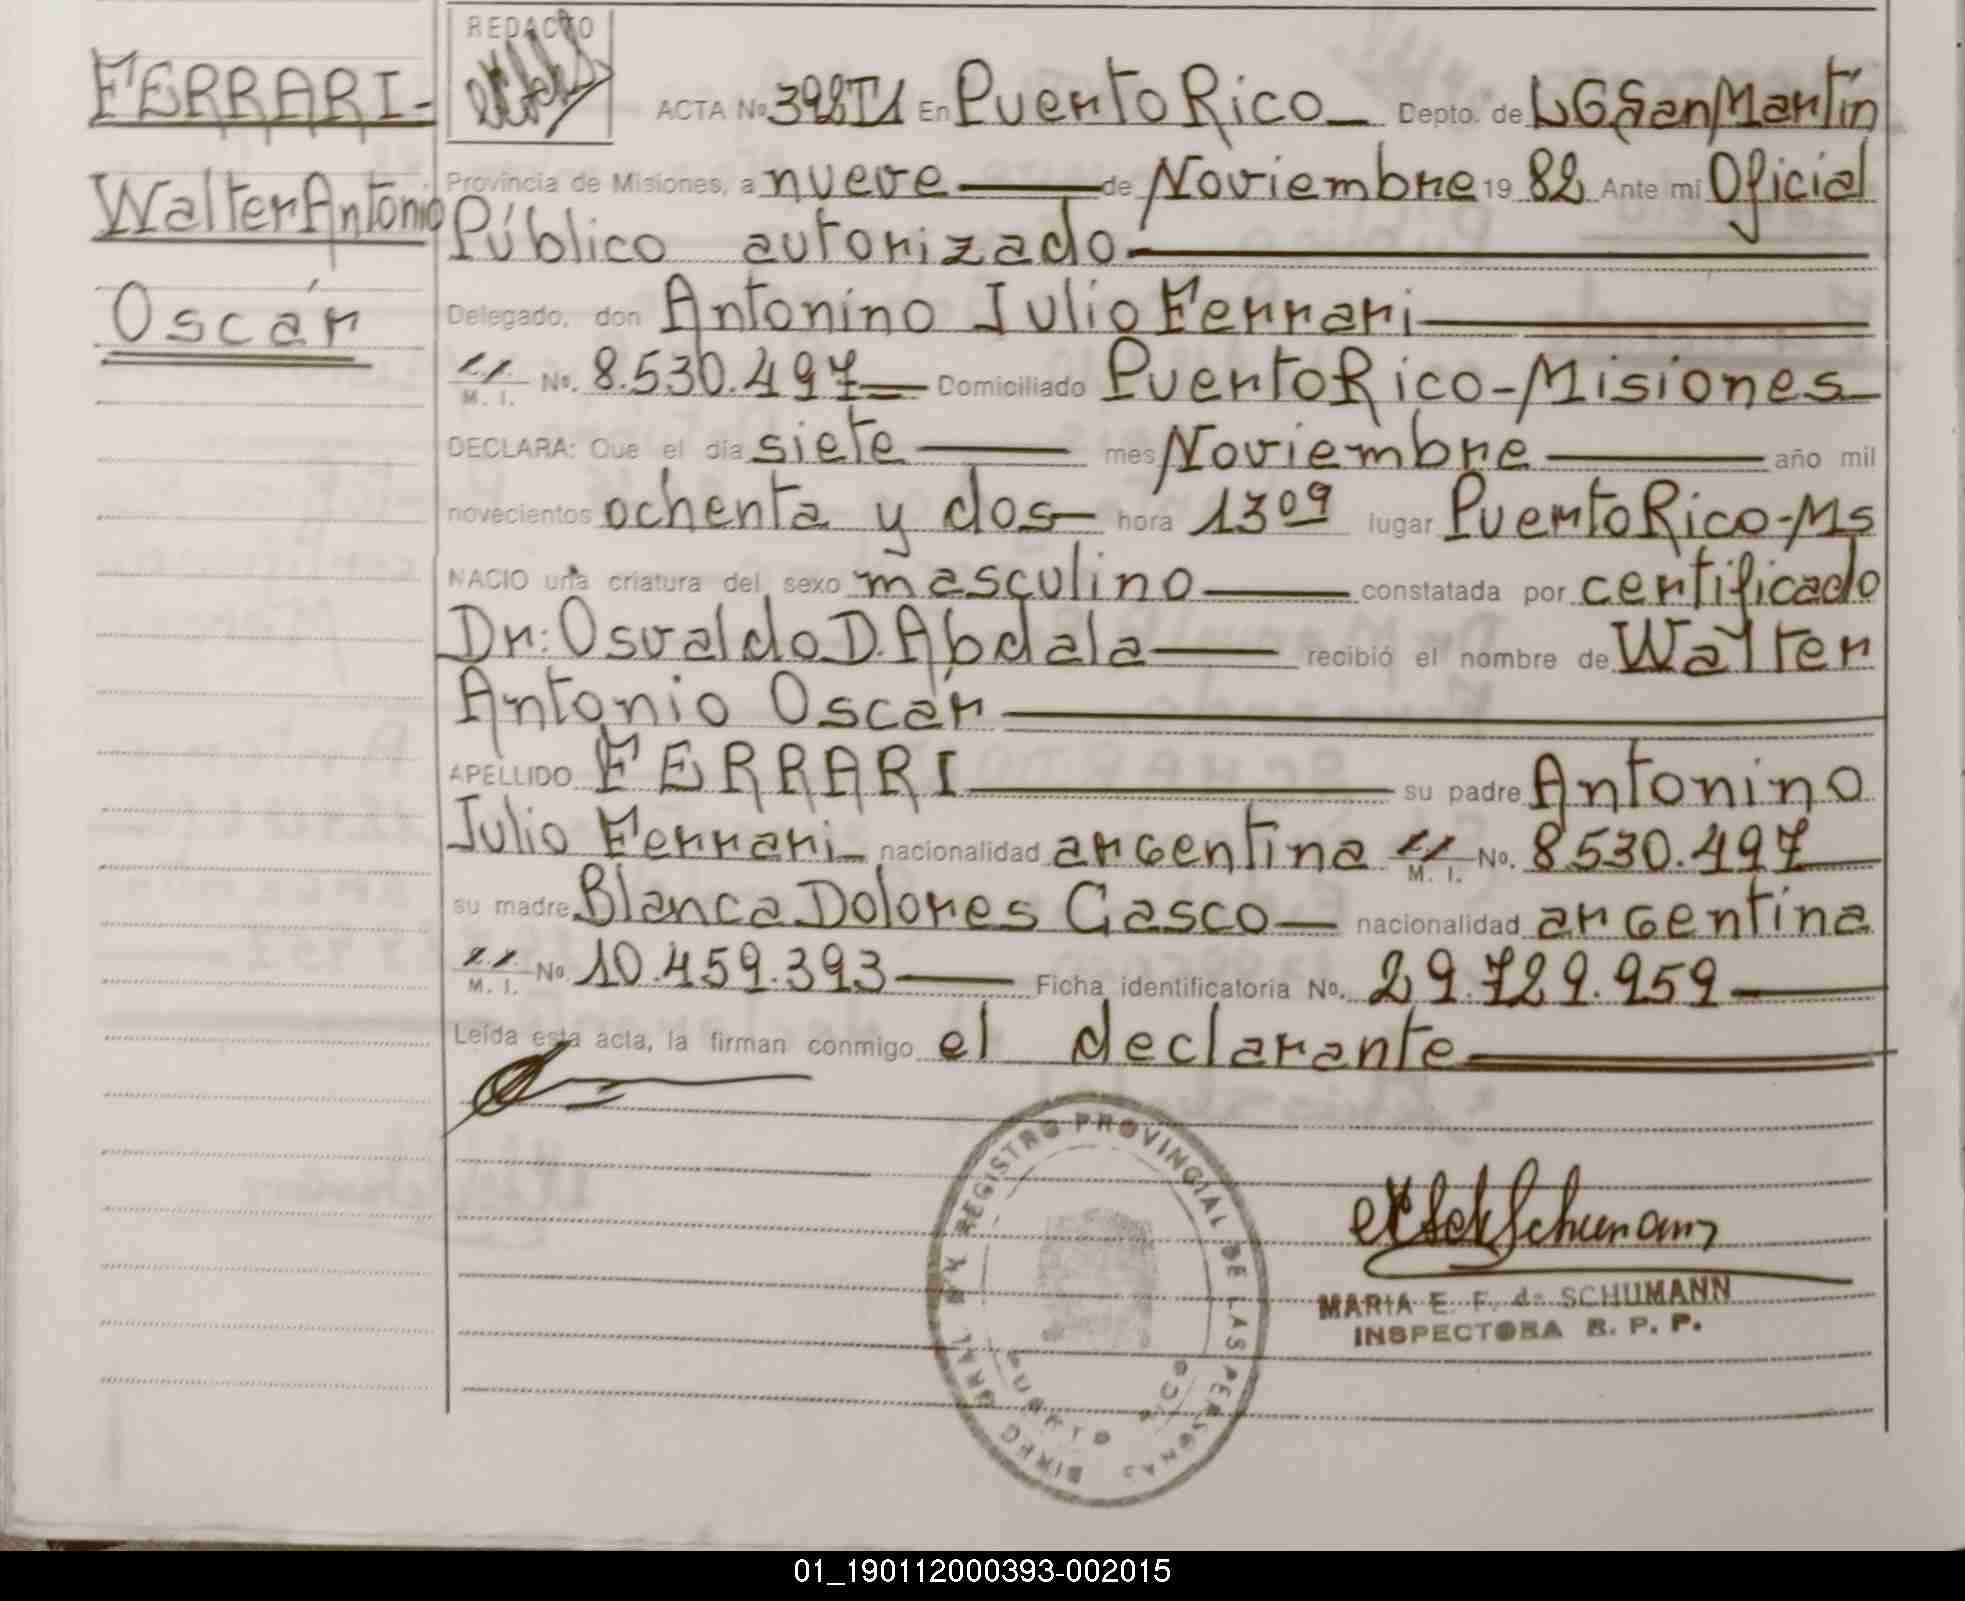 FERRARI-
Walter Antonio
Oscár
REDACTO
ACTA No 398T1 En Puerto Rico Depto. de LG San Martín
Provincia de Misiones, a nueve de Noviembre 19 82 Ante mí Oficial
Público autorizado
Delegado, don Antonino Julio Ferrari
M. I. No. 8.530.497 Domiciliado Puerto Rico-Misiones
DECLARA: Que el día siete mes Noviembre año mil
novecientos ochenta y dos hora 13 09 lugar Puerto Rico-Ms
NACIO una criatura del sexo masculino constatada por certificado
Dr: Osvaldo D. Abdala recibió el nombre de Walter
Antonio Oscár
APELLIDO FERRARI su padre Antonino
Julio Ferrari nacionalidad argentina M. I. No. 8.530.497
su madre Blanca Dolores Gasco nacionalidad argentina
M. I. No 10.459.393 Ficha identificatoria No. 29.729.959
Leída esta acta, la firman conmigo el declarante
DIREC GRAL DEL REGISTRO PROVINCIAL DE LAS PERSONAS
PUERTO RICO
Schumann
MARIA E. F. de SCHUMANN
INSPECTORA R. P. P.
01_190112000393-002015